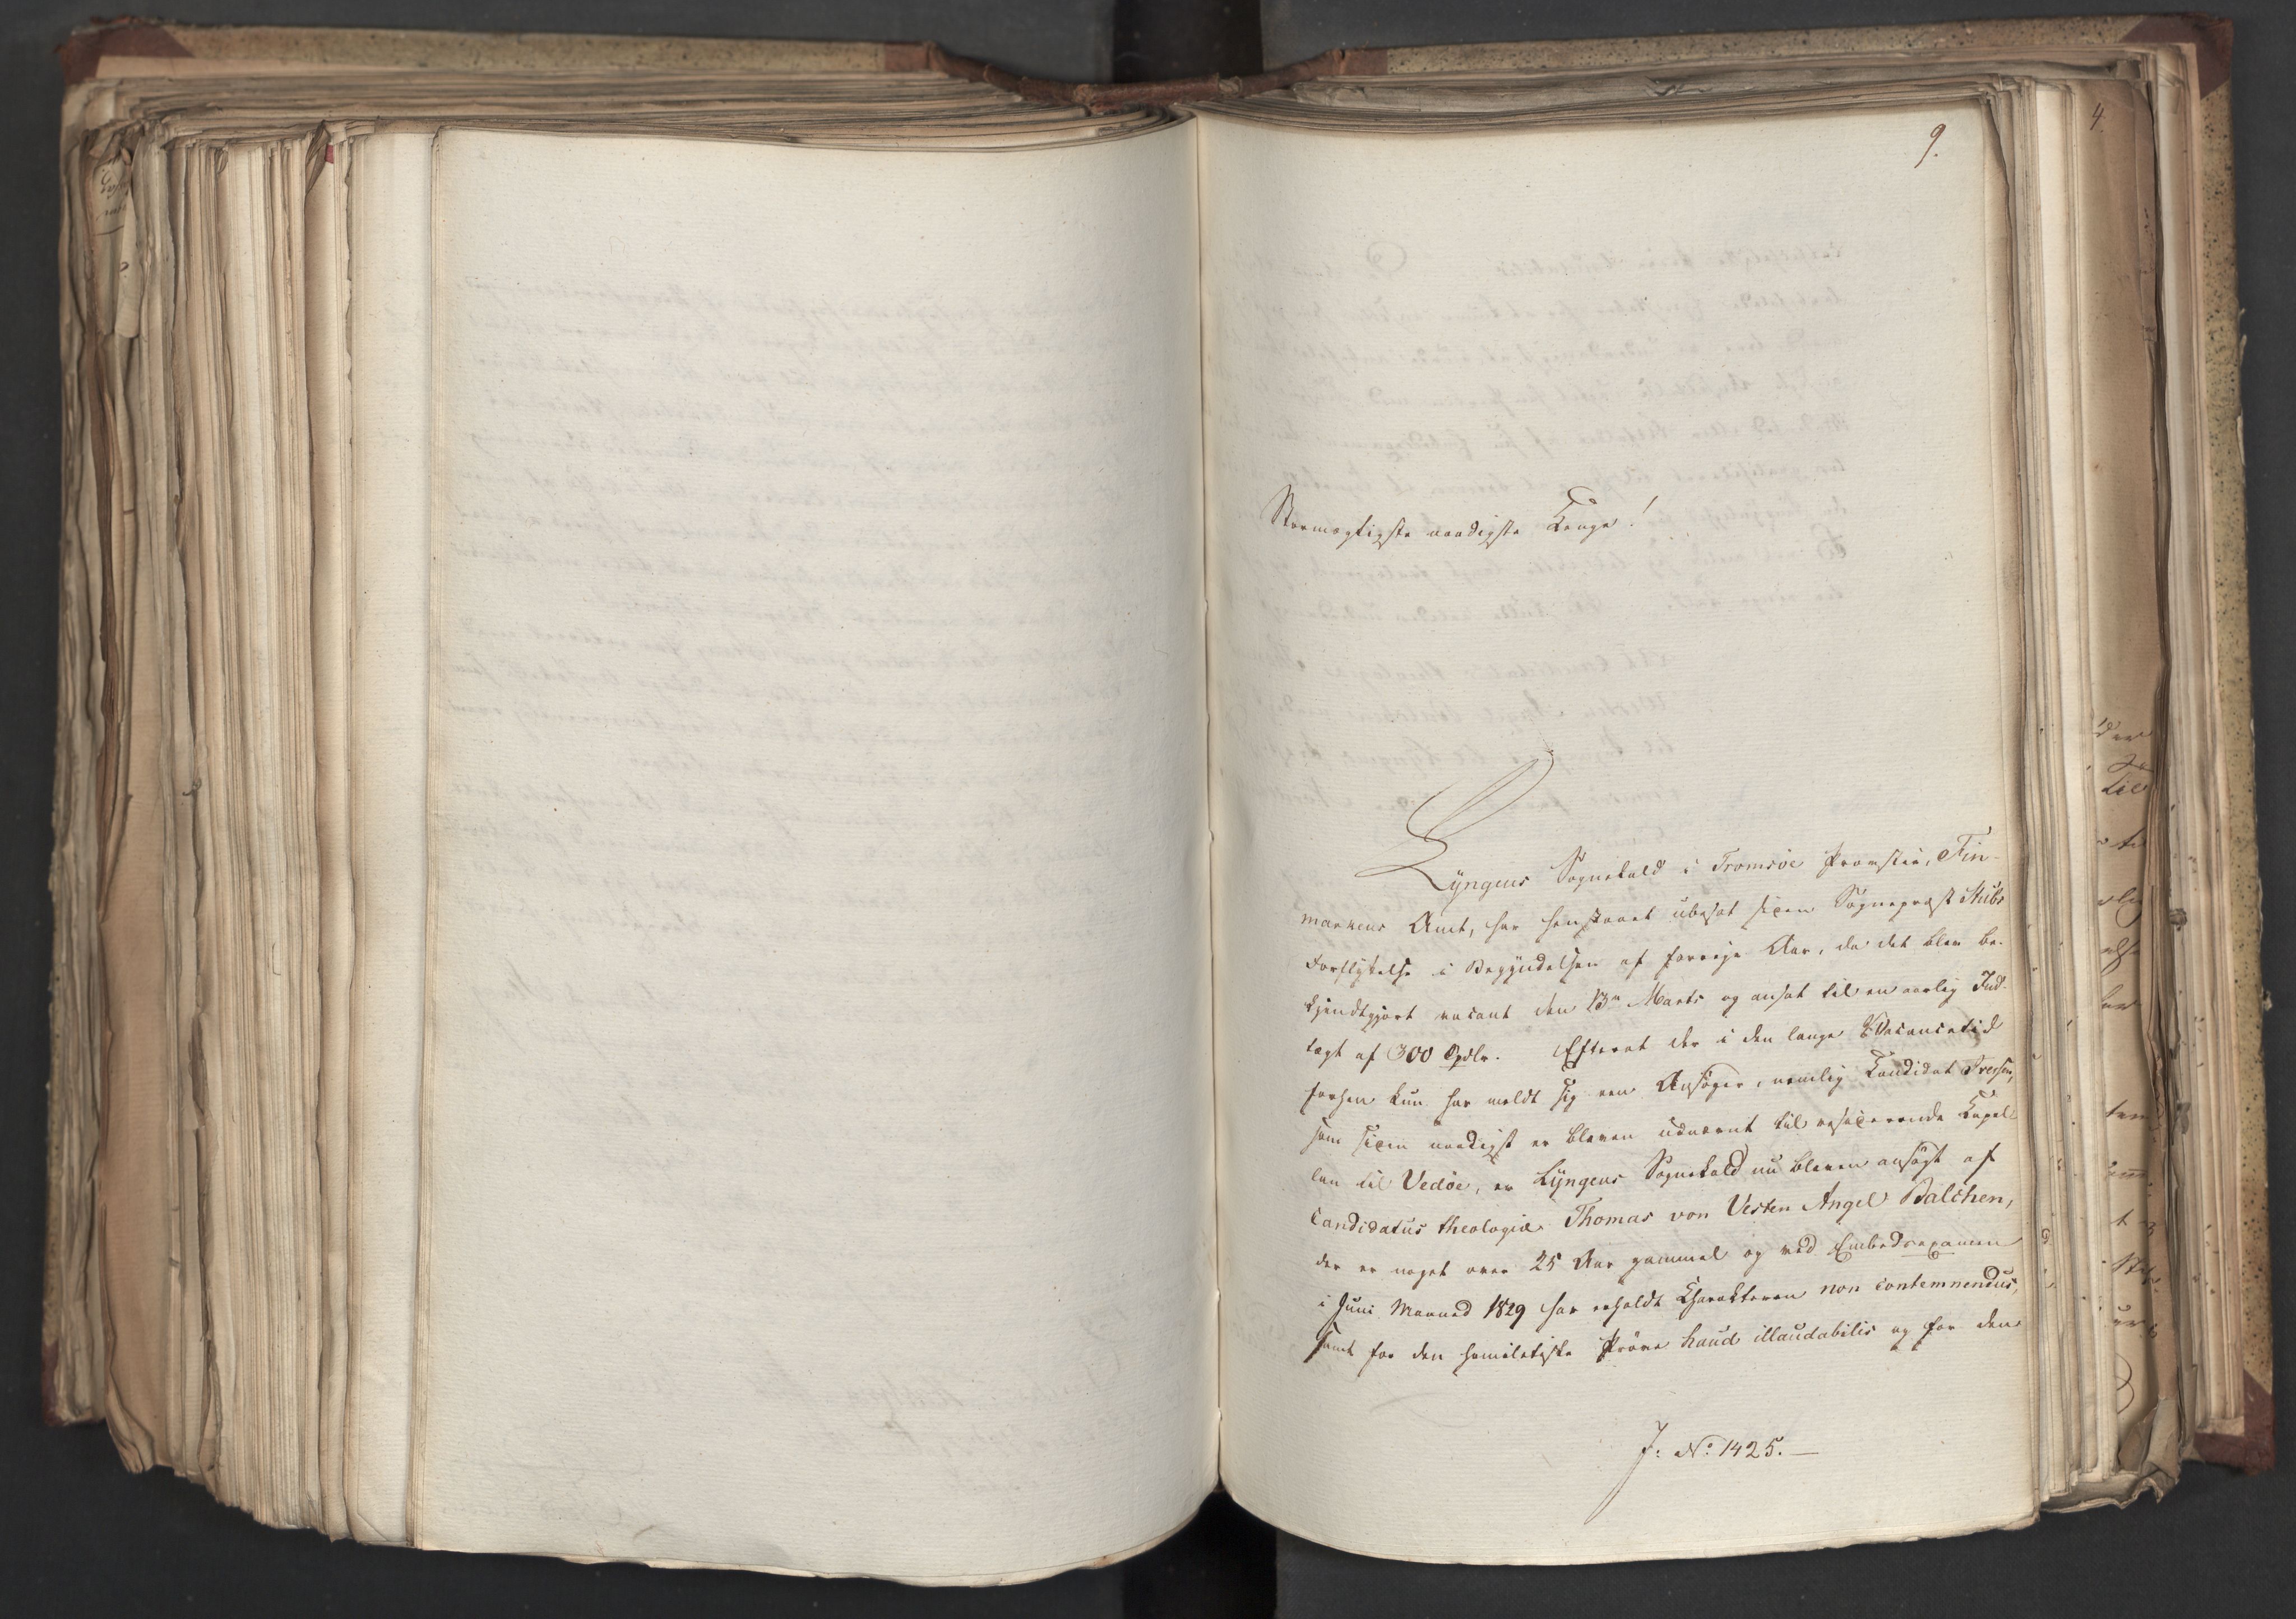 9.
4.
Stormægtigste naadigste Konge!
Lyngens Sognekald i Tromsöe Provstie, Fin-
markens Amt, har henstaaet ubesat siden Sognepræst Stubs
Forflyttelse i Begyndelsen af forrige Aar, da det blev be-
kjendtgjort vacant den 13n Marts og ansat til en aarlig Ind-
tægt af 300 Spdlr. Efterat der i den lange Vacancetid
forhen kun har meldt sig een Ansöger, nemlig Kandidat
som siden naadigst er bleven udnævnt til residerende Capel-
lan til Vedöe, er Lyngens Sognekald nu bleven ansögt af
Candidatus theologiæ Thomas von Vesten Angel Balchen,
der er noget over 25 Aar gammel og ved Embedsexamen
i Juni Maaned 1829 har erholdt Charakteren non contemnendus,
samt for den homiletiske Pröve haud illaudabilis og for den
J: No: 1425.—